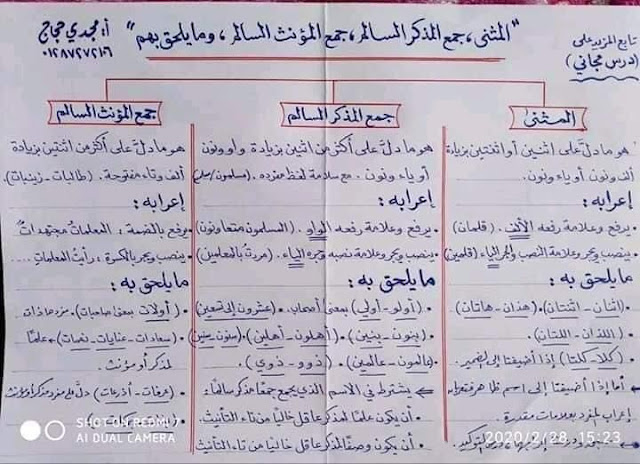 "المثنى، جمع المذكر السالم، جمع المؤنث السالم، وما يلحق بهم"
أ. مجدي حجاج
تابع المزيد على
(درس مجاني)
المثنى
هو ما دلّ على اثنين أو اثنتين بزيادة
ألف ونون أو ياء ونون.
إعرابه:
يرفع وعلامة رفعه الألف. (قلمان)
ينصب ويجر وعلامة النصب والجر الياء (قلمين)
ما يلحق به:
(اثنان - اثنتان)، (هذان - هاتان)
(اللذان - اللتان).
(كلا - كلتا) إذا أضيفتا إلى الضمير.
أما إذا أضيفتا إلى اسم ظاهر
إعراب المفرد بعلامات مقدرة.
جمع المذكر السالم
هو ما دلّ على أكثر من اثنين بزيادة واو ونون
أو ياء ونون. مع سلامة لفظ مفرده. (مسلمون/مسلم)
إعرابه:
يرفع وعلامة رفعه الواو. (المسلمون متعاونون)
ينصب ويجر وعلامة نصبه وجره الياء. (مررت بالمعلمين)
ما يلحق به:
(أولو - أولي) بمعنى أصحاب. (عشرون إلى تسعين)
(بنون - بنين) (أهلون - أهلين) (سنون سنين)
(عالمون - عالمين) (ذوو - ذوي).
يشترط في الاسم الذي يجمع جمعًا مذكر سالمًا:
أن يكون علمًا لمذكر عاقل خاليًا من تاء التأنيث.
أن يكون وصفًا لمذكر عاقل خاليا من تاء التأنيث
جمع المؤنث السالم
هو ما دلّ على أكثر من اثنتين بزيادة
ألف وتاء مفتوحة. (طالبات - زينبات)
إعرابه:
يرفع بالضمة: المعلمات مجتهدات
ينصب ويجر بالكسرة: رأيت المعلمات....
ما يلحق به:
(أولات) بمعنى صاحبات. مفردها ذات
(سعادات - عنايات - نعمات) علمًا
لمذكر أو مؤنث.
(عرفات - أذرعات)
SHOT ON REDMI 7
AI DUAL CAMERA
2020/2/28 15:23